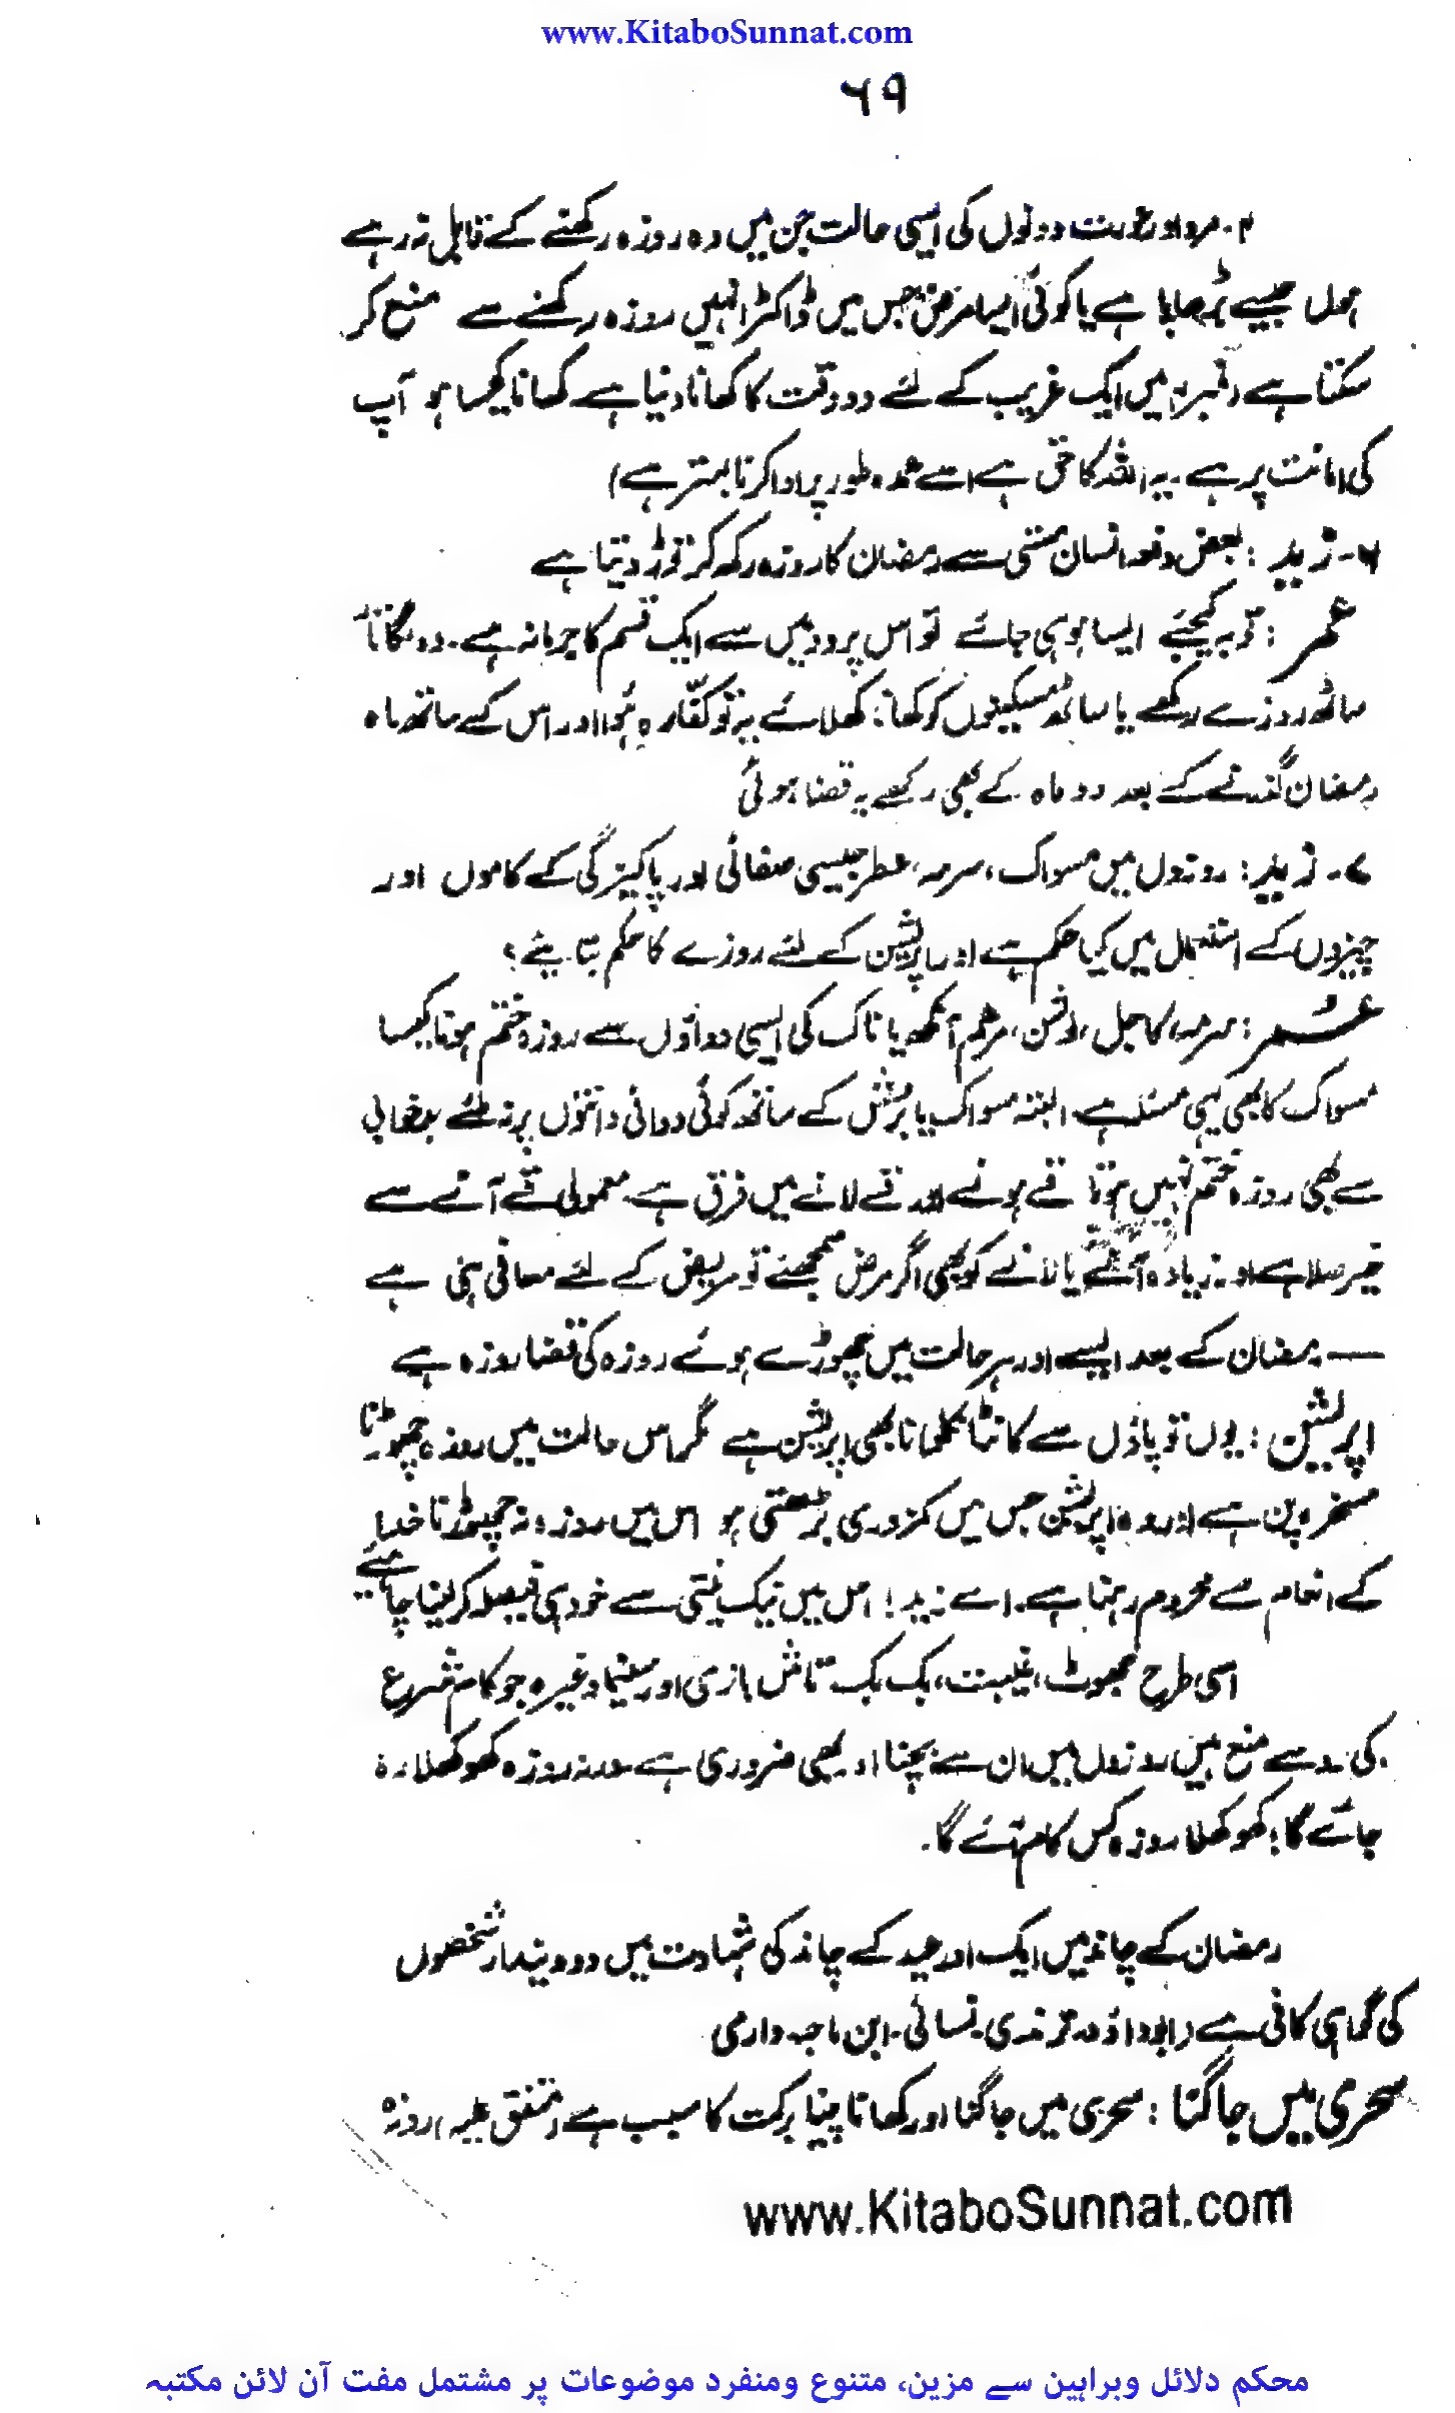 www.KitaboSunnat.com
۶۹
۴۔ مرد اور عورت دونوں کی ایسی حالت جن میں وہ روزہ رکھنے کے قابل نہ رہے
ہوں جیسے بڑھاپا ہے یا کوئی ایسا مرض جس میں ڈاکٹر انہیں روزہ رکھنے سے منع کر
سکتا ہے میں ایک غریب کے لئے دو وقت کا کھانا دینا ہے کھانا کیسا ہو آپ
کی امانت پر ہے ۔ یہ اللہ کا حق ہے اسے عمدہ طور پر ادا کرنا بہتر ہے)
۶۔ زید : بعض دفعہ انسان سستی سے رمضان کا روزہ رکھ کر توڑ دیتا ہے
عمر : توبہ کیجئے ایسا ہو ہی جائے تو اس پر دو میں سے ایک قسم کا جرمانہ ہے۔ دو لگاتار
ساٹھ روزے رکھے یا ساٹھ مسکینوں کو کھانا کھلائے یہ تو کفّارہ ہُوا اور اس کے ساتھ ماہ
رمضان گذرنے کے بعد دو ماہ کے بھی رکھے یہ قضا ہوئی
۷۔ زید : روزوں میں مسواک، سرمہ، عطر جیسی صفائی اور پاکیزگی کے کاموں اور
چیزوں کے استعمال میں کیا حکم ہے اور اپریشن کے لئے روزے کا حکم بتایئے؟
عمر : سرمہ، کاجل، لوشن، مرہم آنکھ یا ناک کی ایسی دواؤں سے روزہ ختم ہونا کیسا
مسواک کا بھی یہی مسئلہ ہے البتہ مسواک یا برش کے ساتھ کوئی دوائی دانتوں پر نہ ملئے بدخوابی
سے بھی روزہ ختم نہیں ہوتا قے ہونے اور قے لانے میں فرق ہے۔ معمولی قے آنے سے
خیر صلا ہے اور زیادہ آنے یا لانے کو بھی اگر مرض سمجھئے تو مریض کے لئے معافی ہی ہے
— رمضان کے بعد ایسے اور ہر حالت میں چھوڑے ہوئے روزہ کی قضا روزہ ہے
اپریشن : یوں تو پاؤں سے کانٹا نکلوانا بھی اپریشن ہے مگر اس حالت میں روزہ چھوڑنا
مسخرہ پن ہے اور وہ اپریشن جس میں کمزوری بڑھتی ہو اس میں روزہ نہ چھوڑنا خدا
کے انعام سے محروم رہنا ہے۔ اے زید! اس میں نیک نیتی سے خود ہی فیصلہ کر لینا چاہئے
اسی طرح جھوٹ، غیبت، بک بک تاش بازی اور سینما وغیرہ جو کام شرع
کی رو سے منع ہیں روزوں میں ان سے بچنا اور بھی ضروری ہے ورنہ روزہ کھوکھلا رہ
جائے گا؛ کھوکھلا روزہ کس کام آئے گا۔
رمضان کے چاند میں ایک اور عید کے چاند کی شہادت میں دو دیندار شخصوں
کی گواہی کافی ہے (ابوداؤد۔ ترمذی۔ نسائی۔ ابن ماجہ۔ دارمی
سحری میں جاگنا : سحری میں جاگنا اور کھانا پینا برکت کا سبب ہے (متفق علیہ) روزہ
www.KitaboSunnat.com
محکم دلائل وبراہین سے مزین، متنوع ومنفرد موضوعات پر مشتمل مفت آن لائن مکتبہ